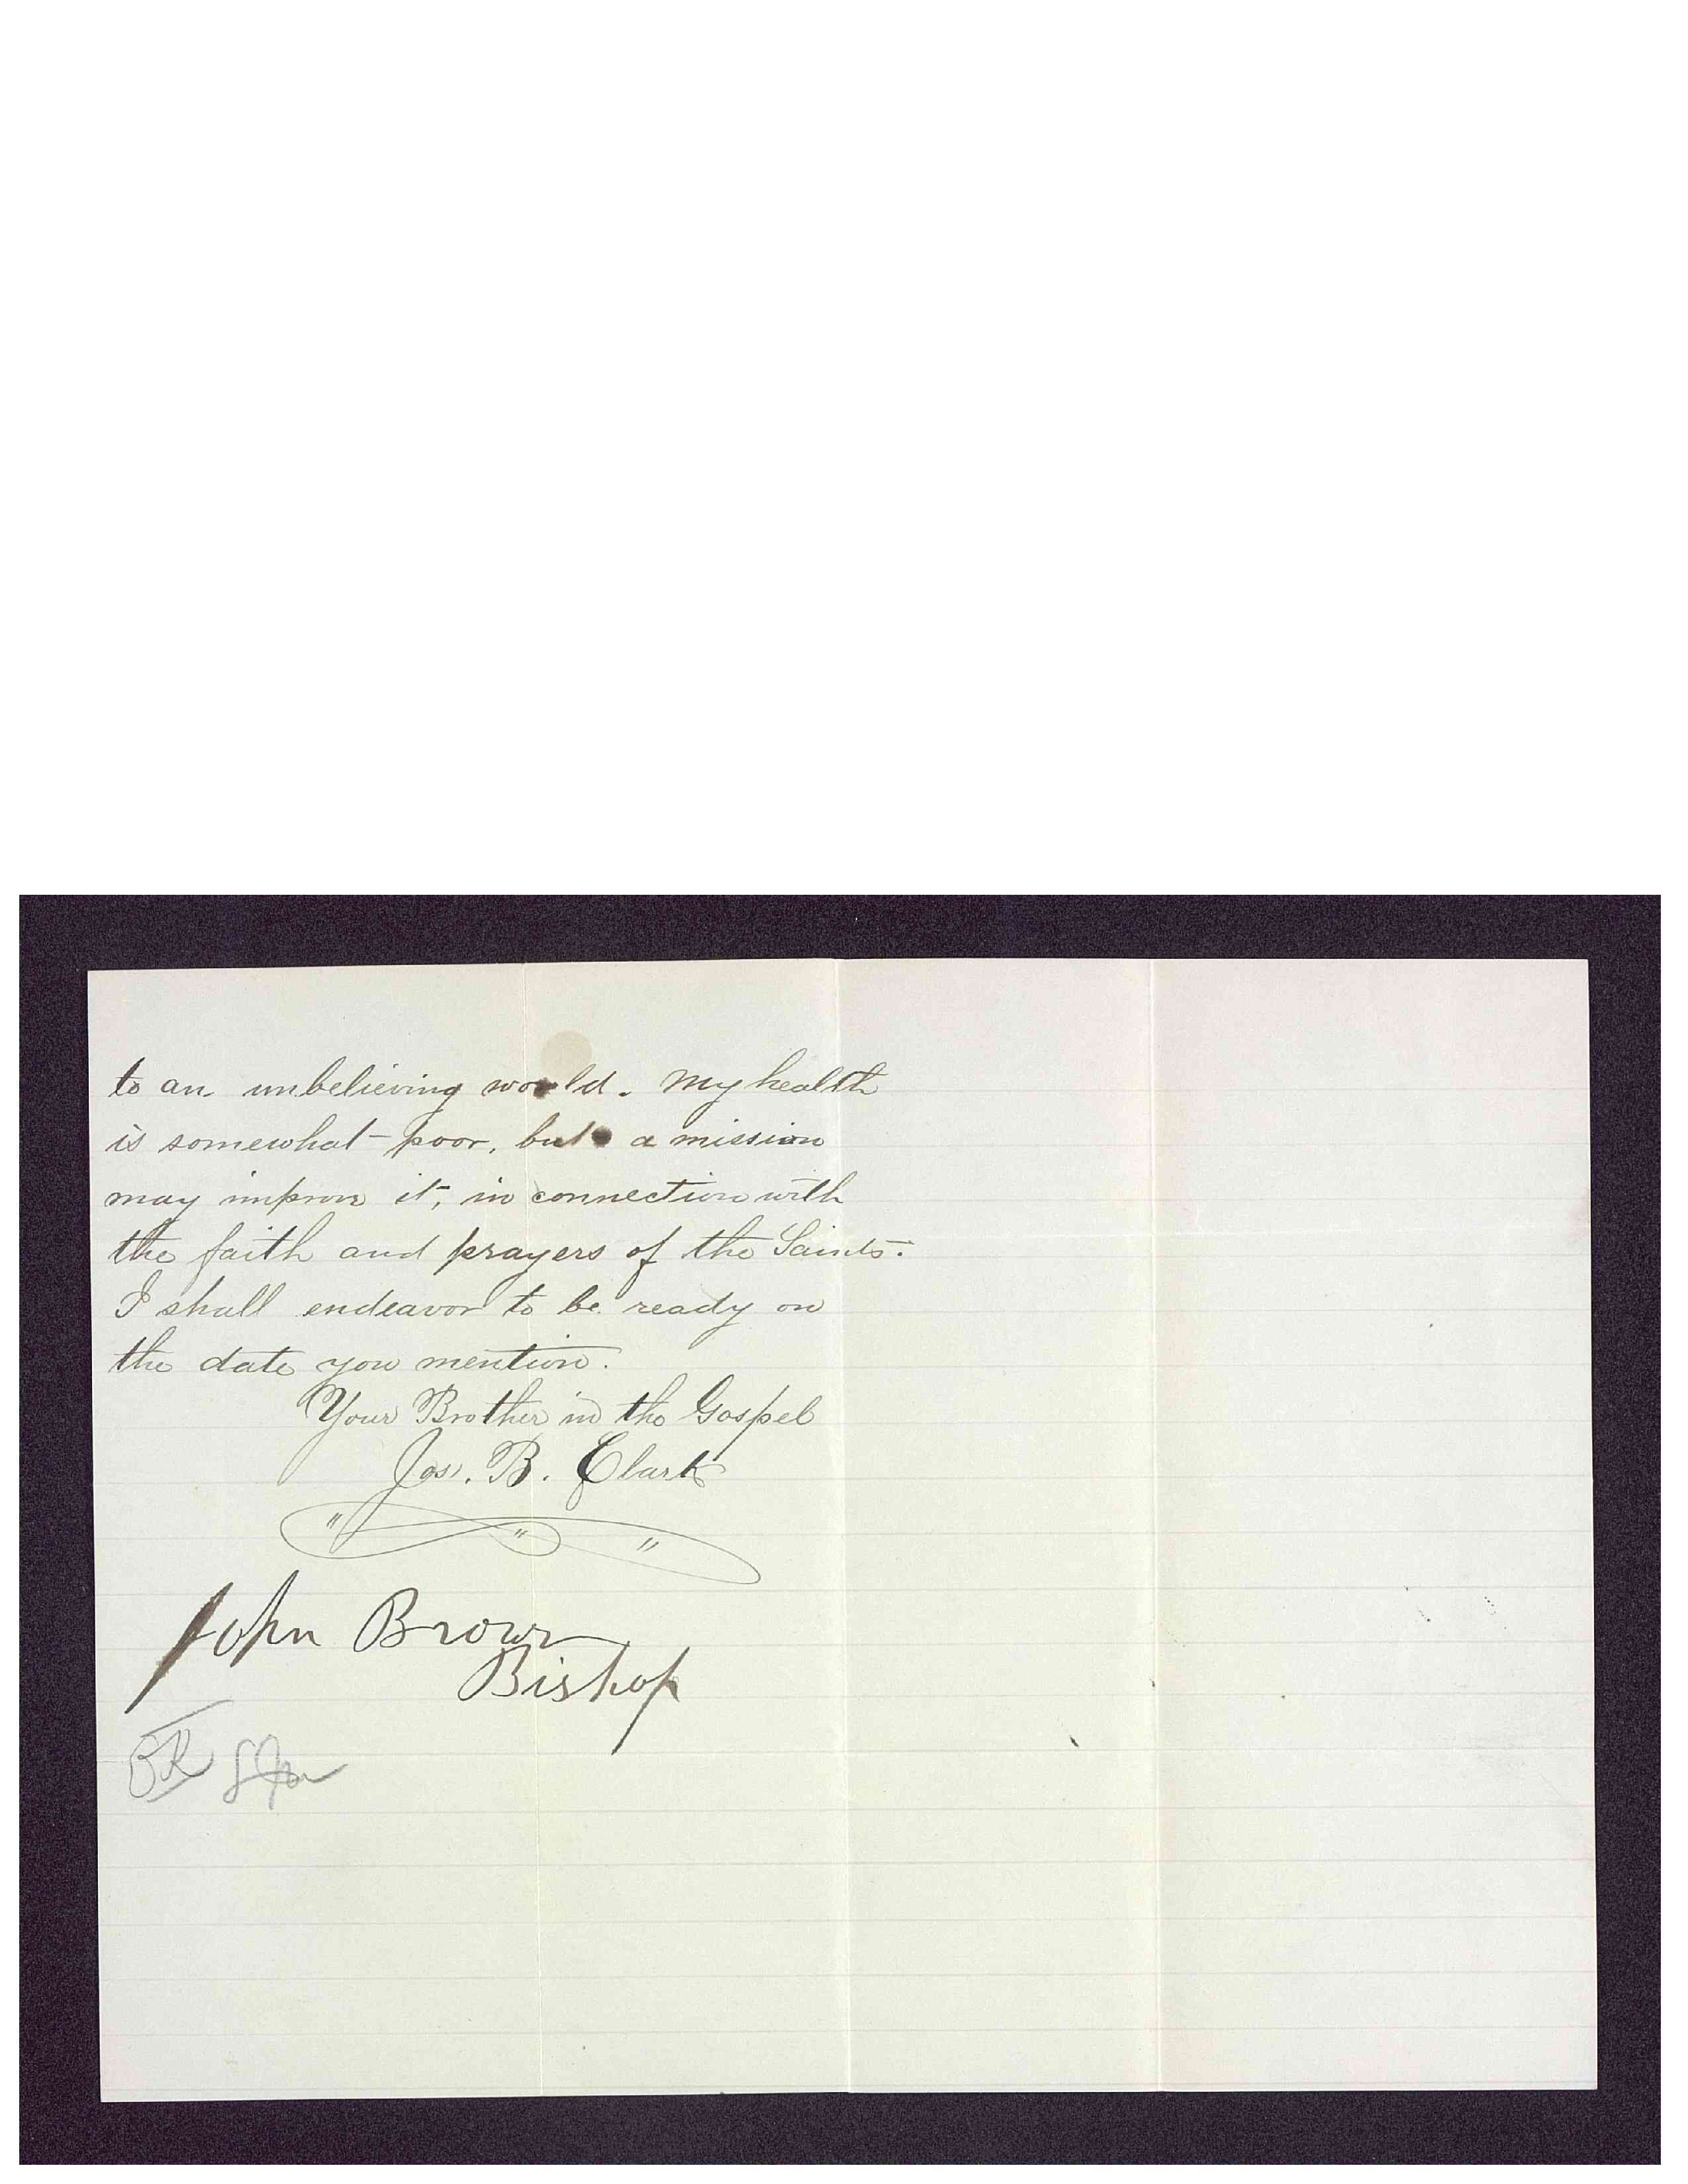 to an unbelieving world. My health
is somewhat poor, but a mission
may improve it, in connection with
the faith and prayers of the Saints.
I shall endeavor to be ready on
the date you mention.
Your Brother in the Gospel
Jos. B. Clark
John Brown
Bishop